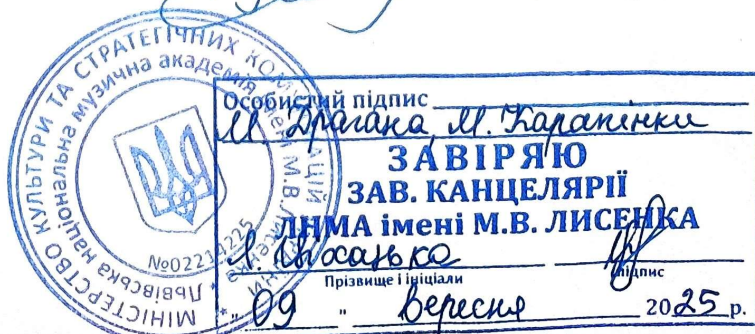 МІНІСТЕРСТВО КУЛЬТУРИ ТА СТРАТЕГІЧНИХ КОМУНІКАЦІЙ
Львівська національна музична академія імені М.В. Лисенка
Особистий підпис
М. Драгана, М. Карапінки
ЗАВІРЯЮ
ЗАВ. КАНЦЕЛЯРІЇ
ЛНМА імені М.В. ЛИСЕНКА
Прізвище і ініціали підпис
" 09 " вересня 2025 р.